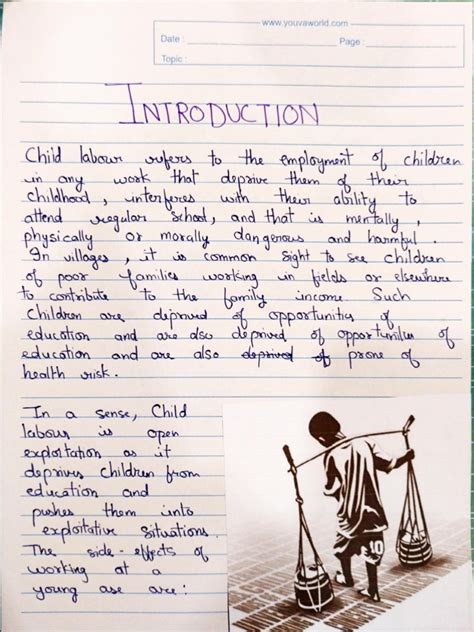 www.youvaworld.com
Date :
Page :
Topic :
INTRODUCTION
Child labour refers to the employment of children
in any work that deprive them of their
childhood, interferes with their ability to
attend regular school, and that is mentally,
physically or morally dangerous and harmful.
In villages, it is common sight to see children
of poor families working in fields or elsewhere
to contribute to the family income. Such
Children are deprived of opportunities of
education and are also deprived of opportunities of
education and are also deprived of prone of
health risk.
In a sense, Child
labour is open
exploitation as it
deprives children from
education and
pushes them into
exploitative situations.
The side-effects of
working at a
young age are:
10